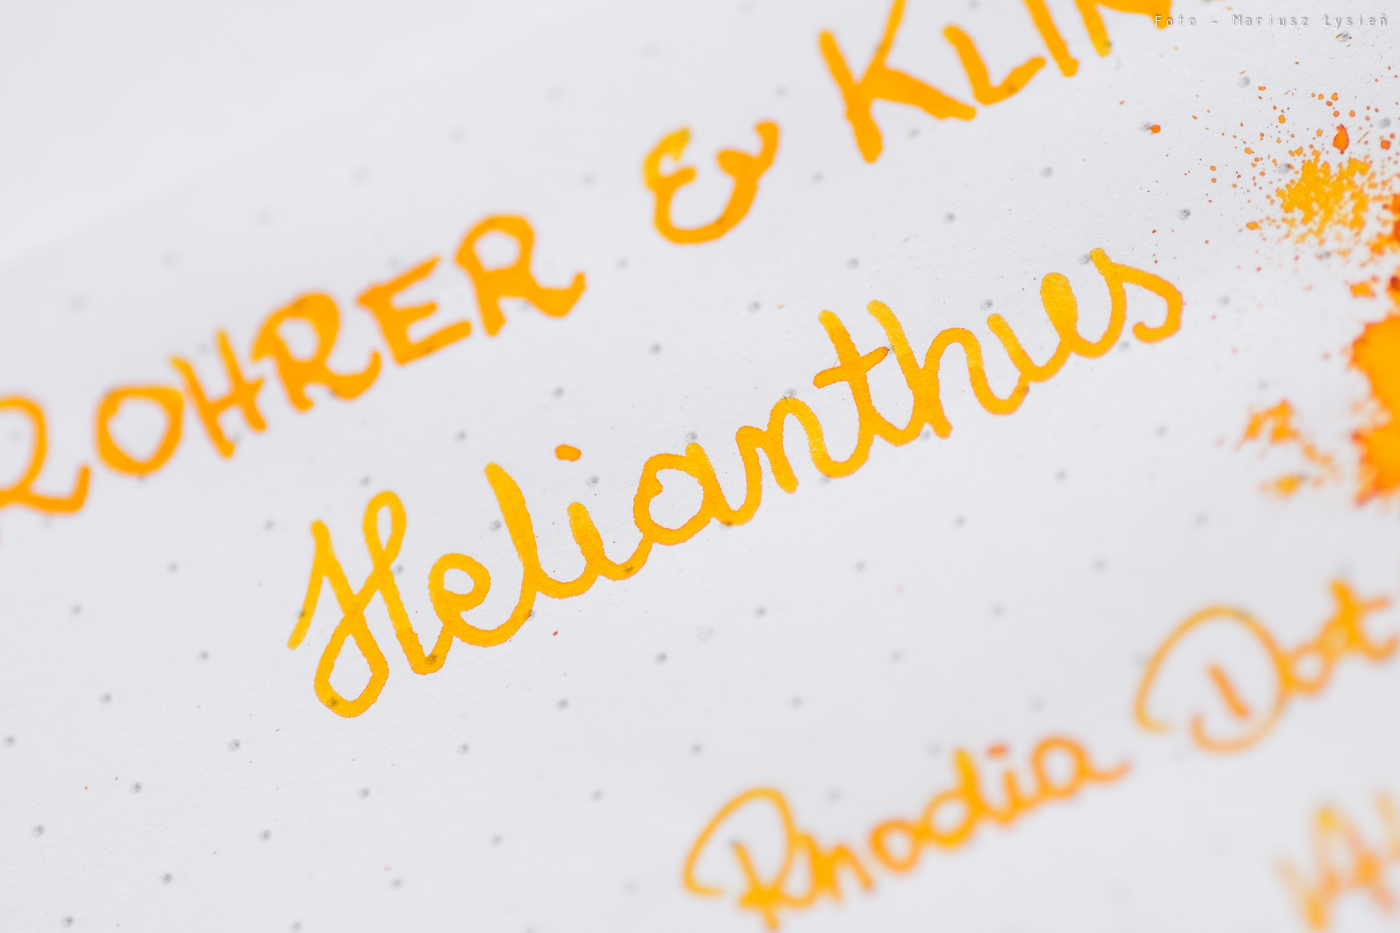 Foto - Mariusz Łysień
ROHRER & KLIN
Helianthus
Rhodia Dot